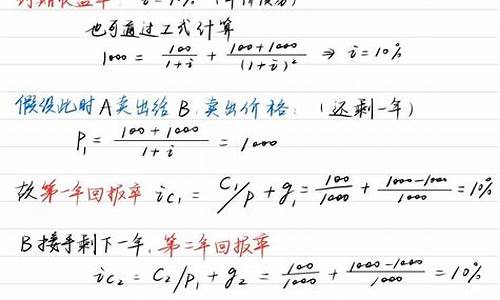 到期收益率 i = 10% (平价债券)
也可通过公式计算
1000 = 100/(1+i) + (100+1000)/(1+i)² ⇒ i = 10%
假设此时A卖出给B,卖出价格:(还剩一年)
P₁ = (100+1000)/(1+i) = 1000
故第一年回报率 ic₁ = C₁/P + g₁ = 100/1000 + (1000-1000)/1000 = 10%
B接手剩下一年,第二年回报率
ic₂ = C₂/P₁ + g₂ = 100/1000 + (1000-1000)/1000 = 10%